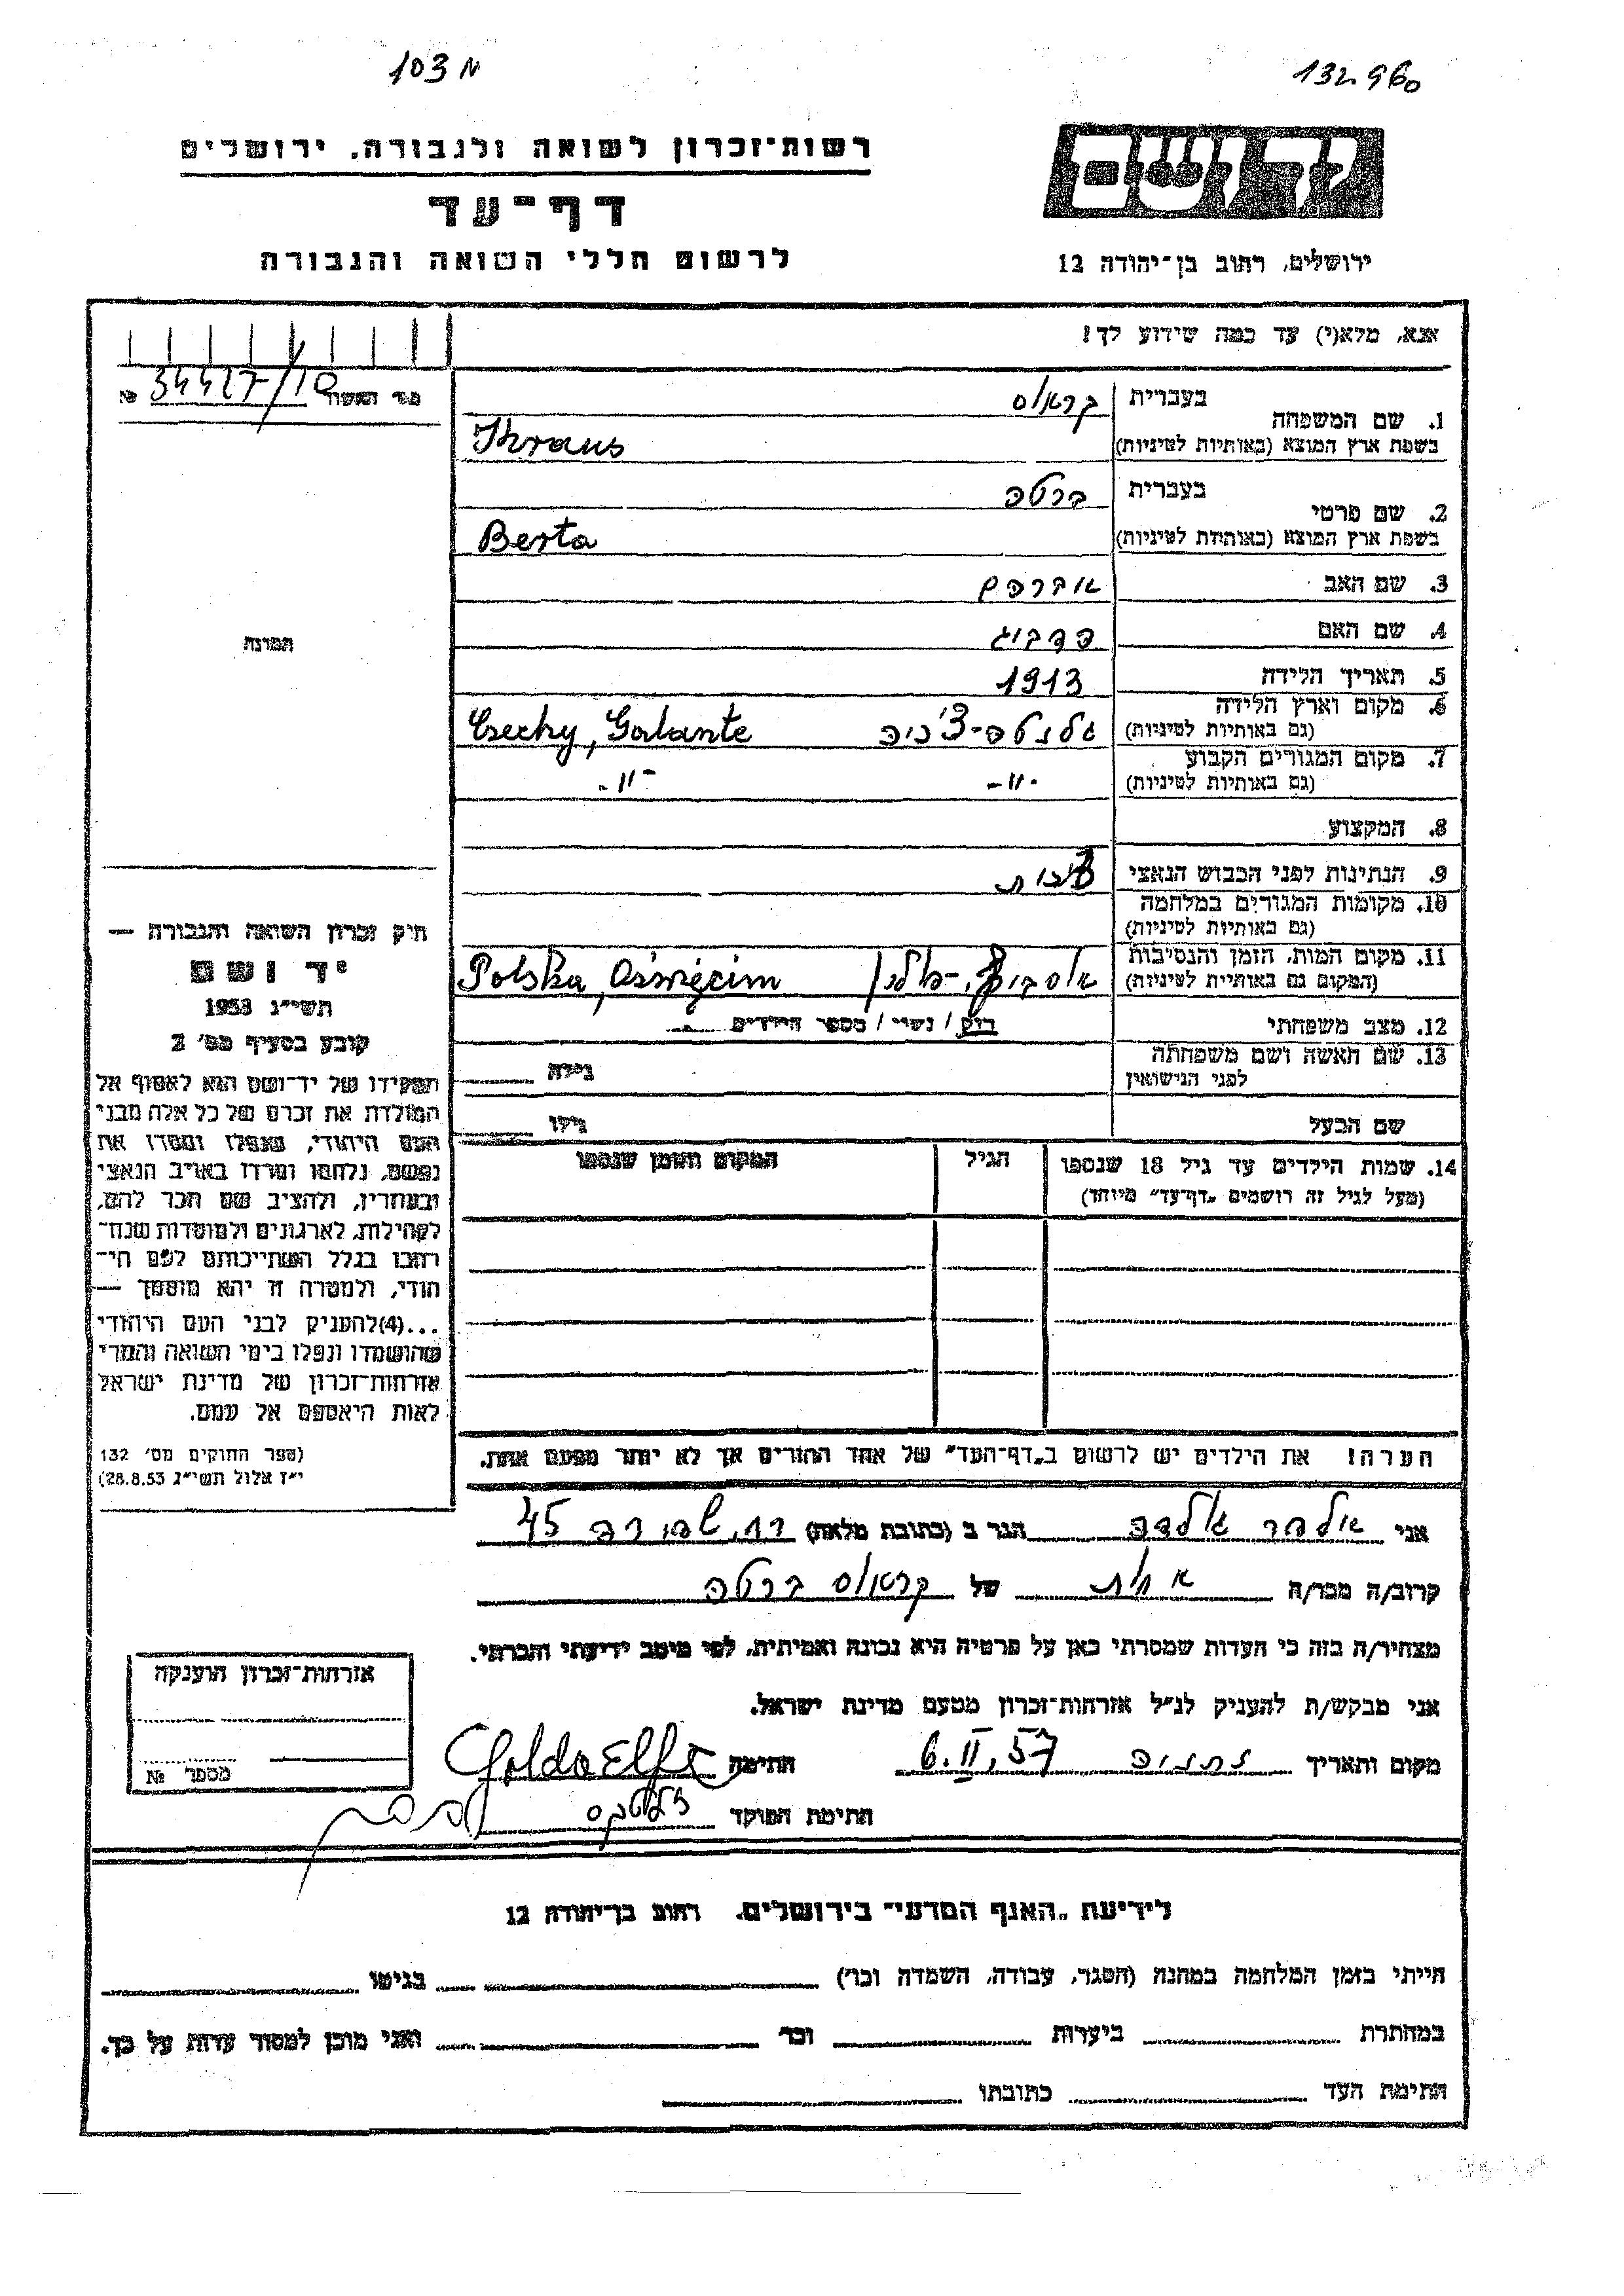 103 א
132.960
רשות־זכרון לשואה ולגבורה, ירושלים
דף־עד
לרשום חללי השואה והגבורה
יד ושם
ירושלים, רחוב בן־יהודה 12
אנא, מלא(י) עד כמה שידוע לך!
34427/10 №
1. שם המשפחה
בעברית קראוס
בשפת ארץ המוצא (באותיות לטיניות) Kraus
2. שם פרטי
בעברית ברטה
בשפת ארץ המוצא (באותיות לטיניות) Berta
3. שם האב אברהם
4. שם האם הדביג
5. תאריך הלידה 1913
6. מקום וארץ הלידה
(גם באותיות לטיניות) גלנטה-צ'כיה Czechy, Galante
7. מקום המגורים הקבוע
(גם באותיות לטיניות) -"- -"-
8. המקצוע
9. הנתינות לפני הכבוש הנאצי צ'כית
10. מקומות המגורים במלחמה
(גם באותיות לטיניות)
11. מקום המות, הזמן והנסיבות
(המקום גם באותיות לטיניות) Polska, Oświęcim
12. מצב משפחתי רוק / נשוי / מספר הילדים
13. שם האשה ושם משפחתה
לפני הנישואין גילה
שם הבעל גילו
14. שמות הילדים עד גיל 18 שנספו
(מעל לגיל זה רושמים "דף־עד" מיוחד)
הגיל
המקום והזמן שנספו
הערה! את הילדים יש לרשום ב"דף־העד" של אחד ההורים אך לא יותר מפעם אחת.
תמונה
חוק זכרון השואה והגבורה —
יד ושם
תשי"ג 1953
קובע בסעיף מס' 2
תפקידו של יד־ושם הוא לאסוף אל
המולדת את זכרם של כל אלה מבני
העם היהודי, שנפלו ומסרו את
נפשם, נלחמו ומרדו באויב הנאצי
ובעוזריו, ולהציב שם וזכר להם,
לקהילות, לארגונים ולמוסדות שנח־
רבו בגלל השתייכותם לעם הי־
הודי, ולמטרה זו יהא מוסמך —
...(4) להעניק לבני העם היהודי
שהושמדו ונפלו בימי השואה והמרי
אזרחות־זכרון של מדינת ישראל
לאות היאספם אל עמם.
(ספר החוקים מס' 132
י"ז אלול תשי"ג 28.8.53)
אני גולדה הגר ב (כתובת מלאה) 45
קרוב/ה מכר/ה אחות של קראוס ברטה
מצהיר/ה בזה כי העדות שמסרתי כאן על פרטיה היא נכונה ואמיתית, לפי מיטב ידיעתי והכרתי.
אני מבקש/ת להעניק לנ"ל אזרחות־זכרון מטעם מדינת ישראל.
מקום ותאריך נתניה 6.II.57 חתימה
חתימת הפוקד
אזרחות־זכרון הוענקה
מספר №
לידיעת "האגף המדעי" בירושלים, רחוב בן־יהודה 12
הייתי בזמן המלחמה במחנה (הסגר, עבודה, השמדה וכו') בגיטו
במחתרת ביערות וכו' ואני מוכן למסור עדות על כך.
חתימת העד כתובתו